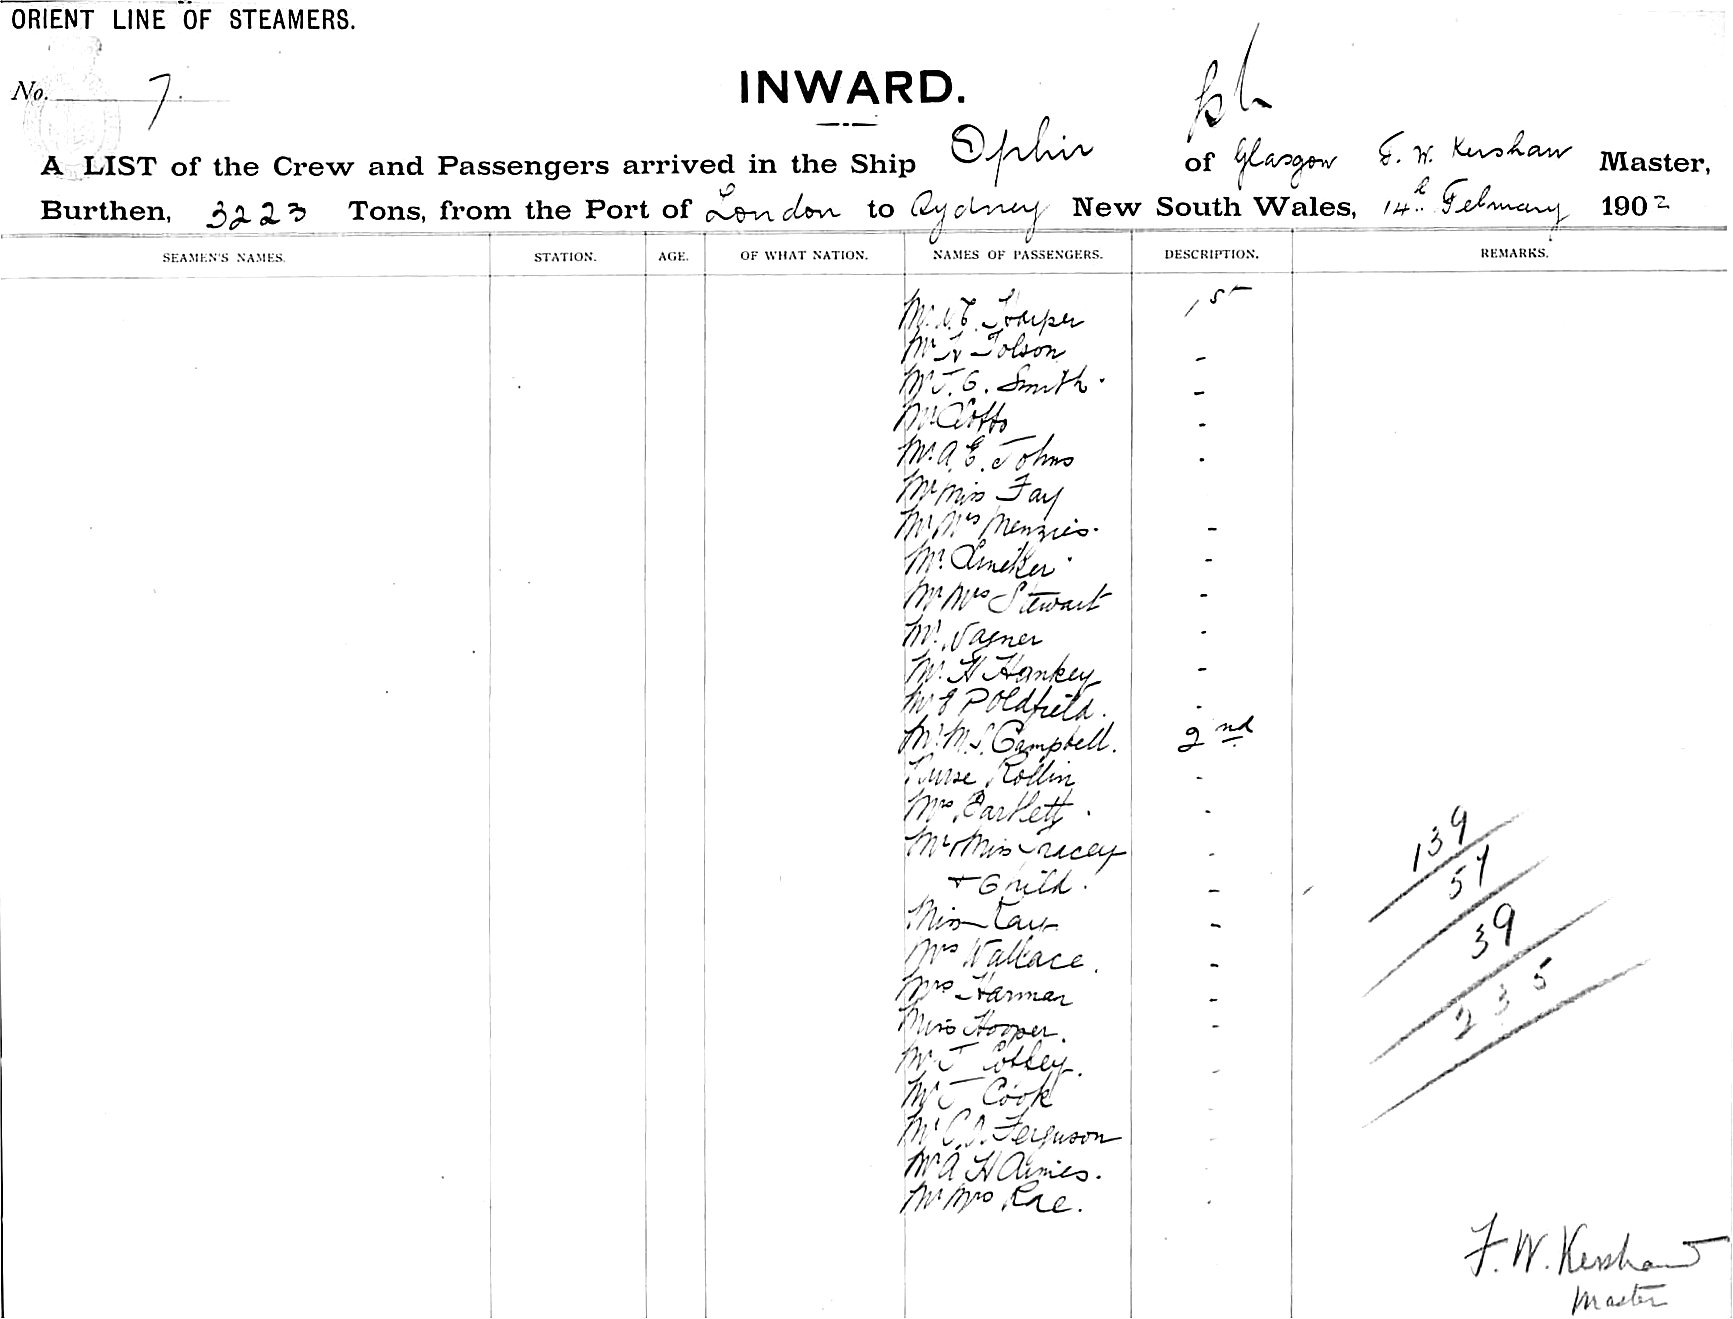 ORIENT LINE OF STEAMERS.
No. 7.
INWARD.
A LIST of the Crew and Passengers arrived in the Ship Ophir of Glasgow F. W. Kershaw Master,
Burthen, 3223 Tons, from the Port of London to Sydney New South Wales, 14th February 1902
SEAMEN'S NAMES. STATION. AGE. OF WHAT NATION. NAMES OF PASSENGERS. DESCRIPTION. REMARKS.
Harper 1st
Mr Tolson -
Mr J. G. Smith. -
Mr -
Mr. A. E. Johns -
Mr Miss Fay
Mr Mrs Menzies. -
Mr. -
Mr Mrs Stewart -
Mr. Vagner -
Mr. H Hankey -
Mr E P Oldfield. -
Mr. M. S. Campbell. 2nd
Nurse Rollin -
Mrs Bartlett. -
Mr Miss Tracey -
+ Child. -
Miss Kay -
Mrs Wallace. -
Mrs Harmar -
Miss Hooper. -
Mr J Cobley. -
Mr J Cook
Mr C. Ferguson
Mr A H Amies.
Mr Mrs Rae. -
139
57
39
235
F. W. Kershaw
Master